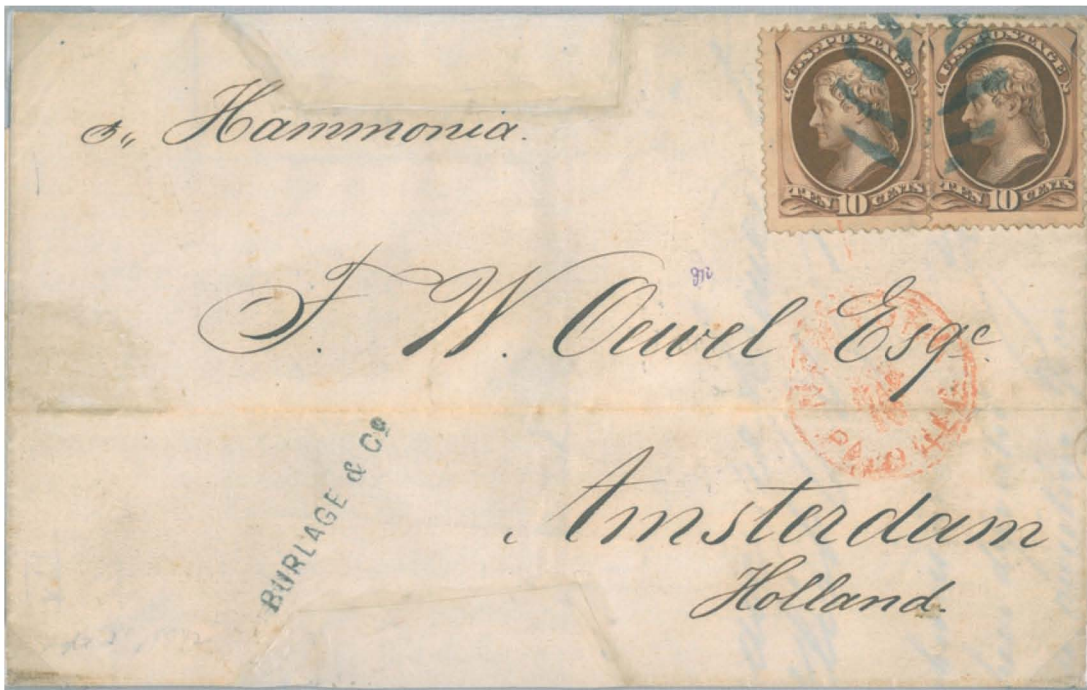 U.S. POSTAGE
TEN 10 CENTS
U.S. POSTAGE
TEN 10 CENTS
Hammonia.
F. W. Oewel Esqe
PAID ALL
BURLAGE & Co
Amsterdam
Holland.